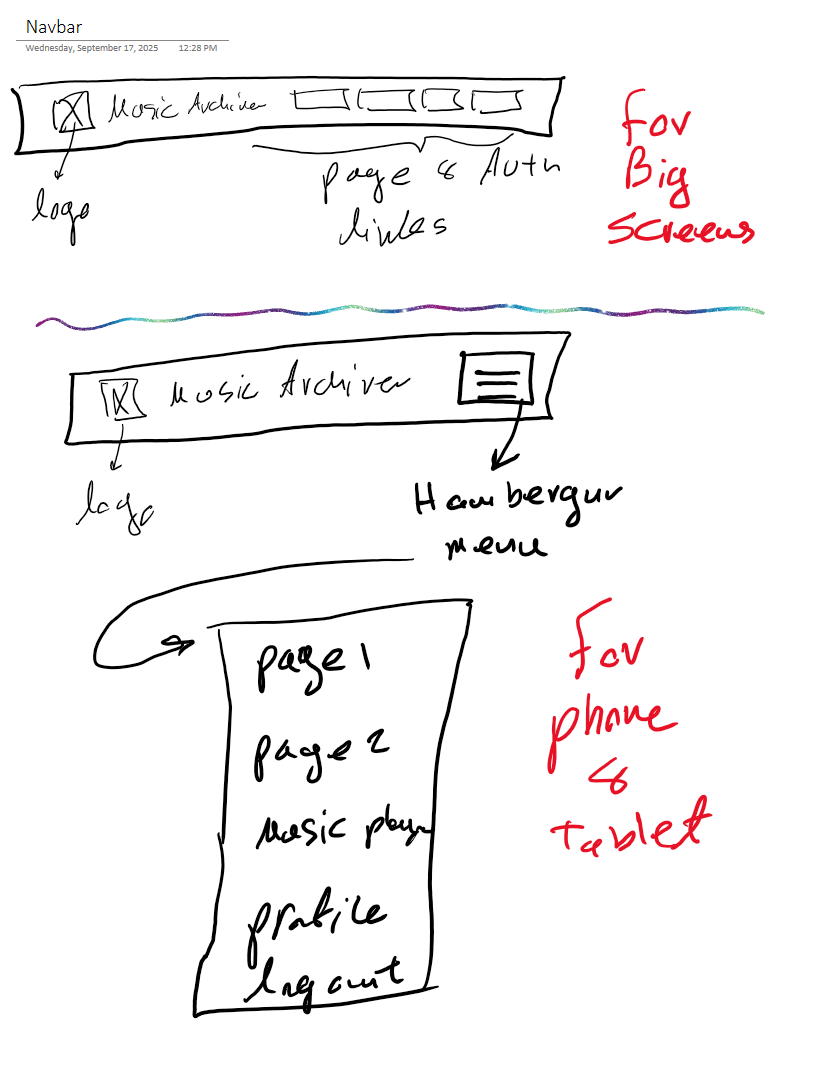 Navbar
Wednesday, September 17, 2025 12:28 PM
Music Archiver
logo
page & Auth
links
For
Big
screens
Music Archiver
logo
Hambergur
menu
page 1
page 2
Music player
profile
logout
For
phone
&
Tablet